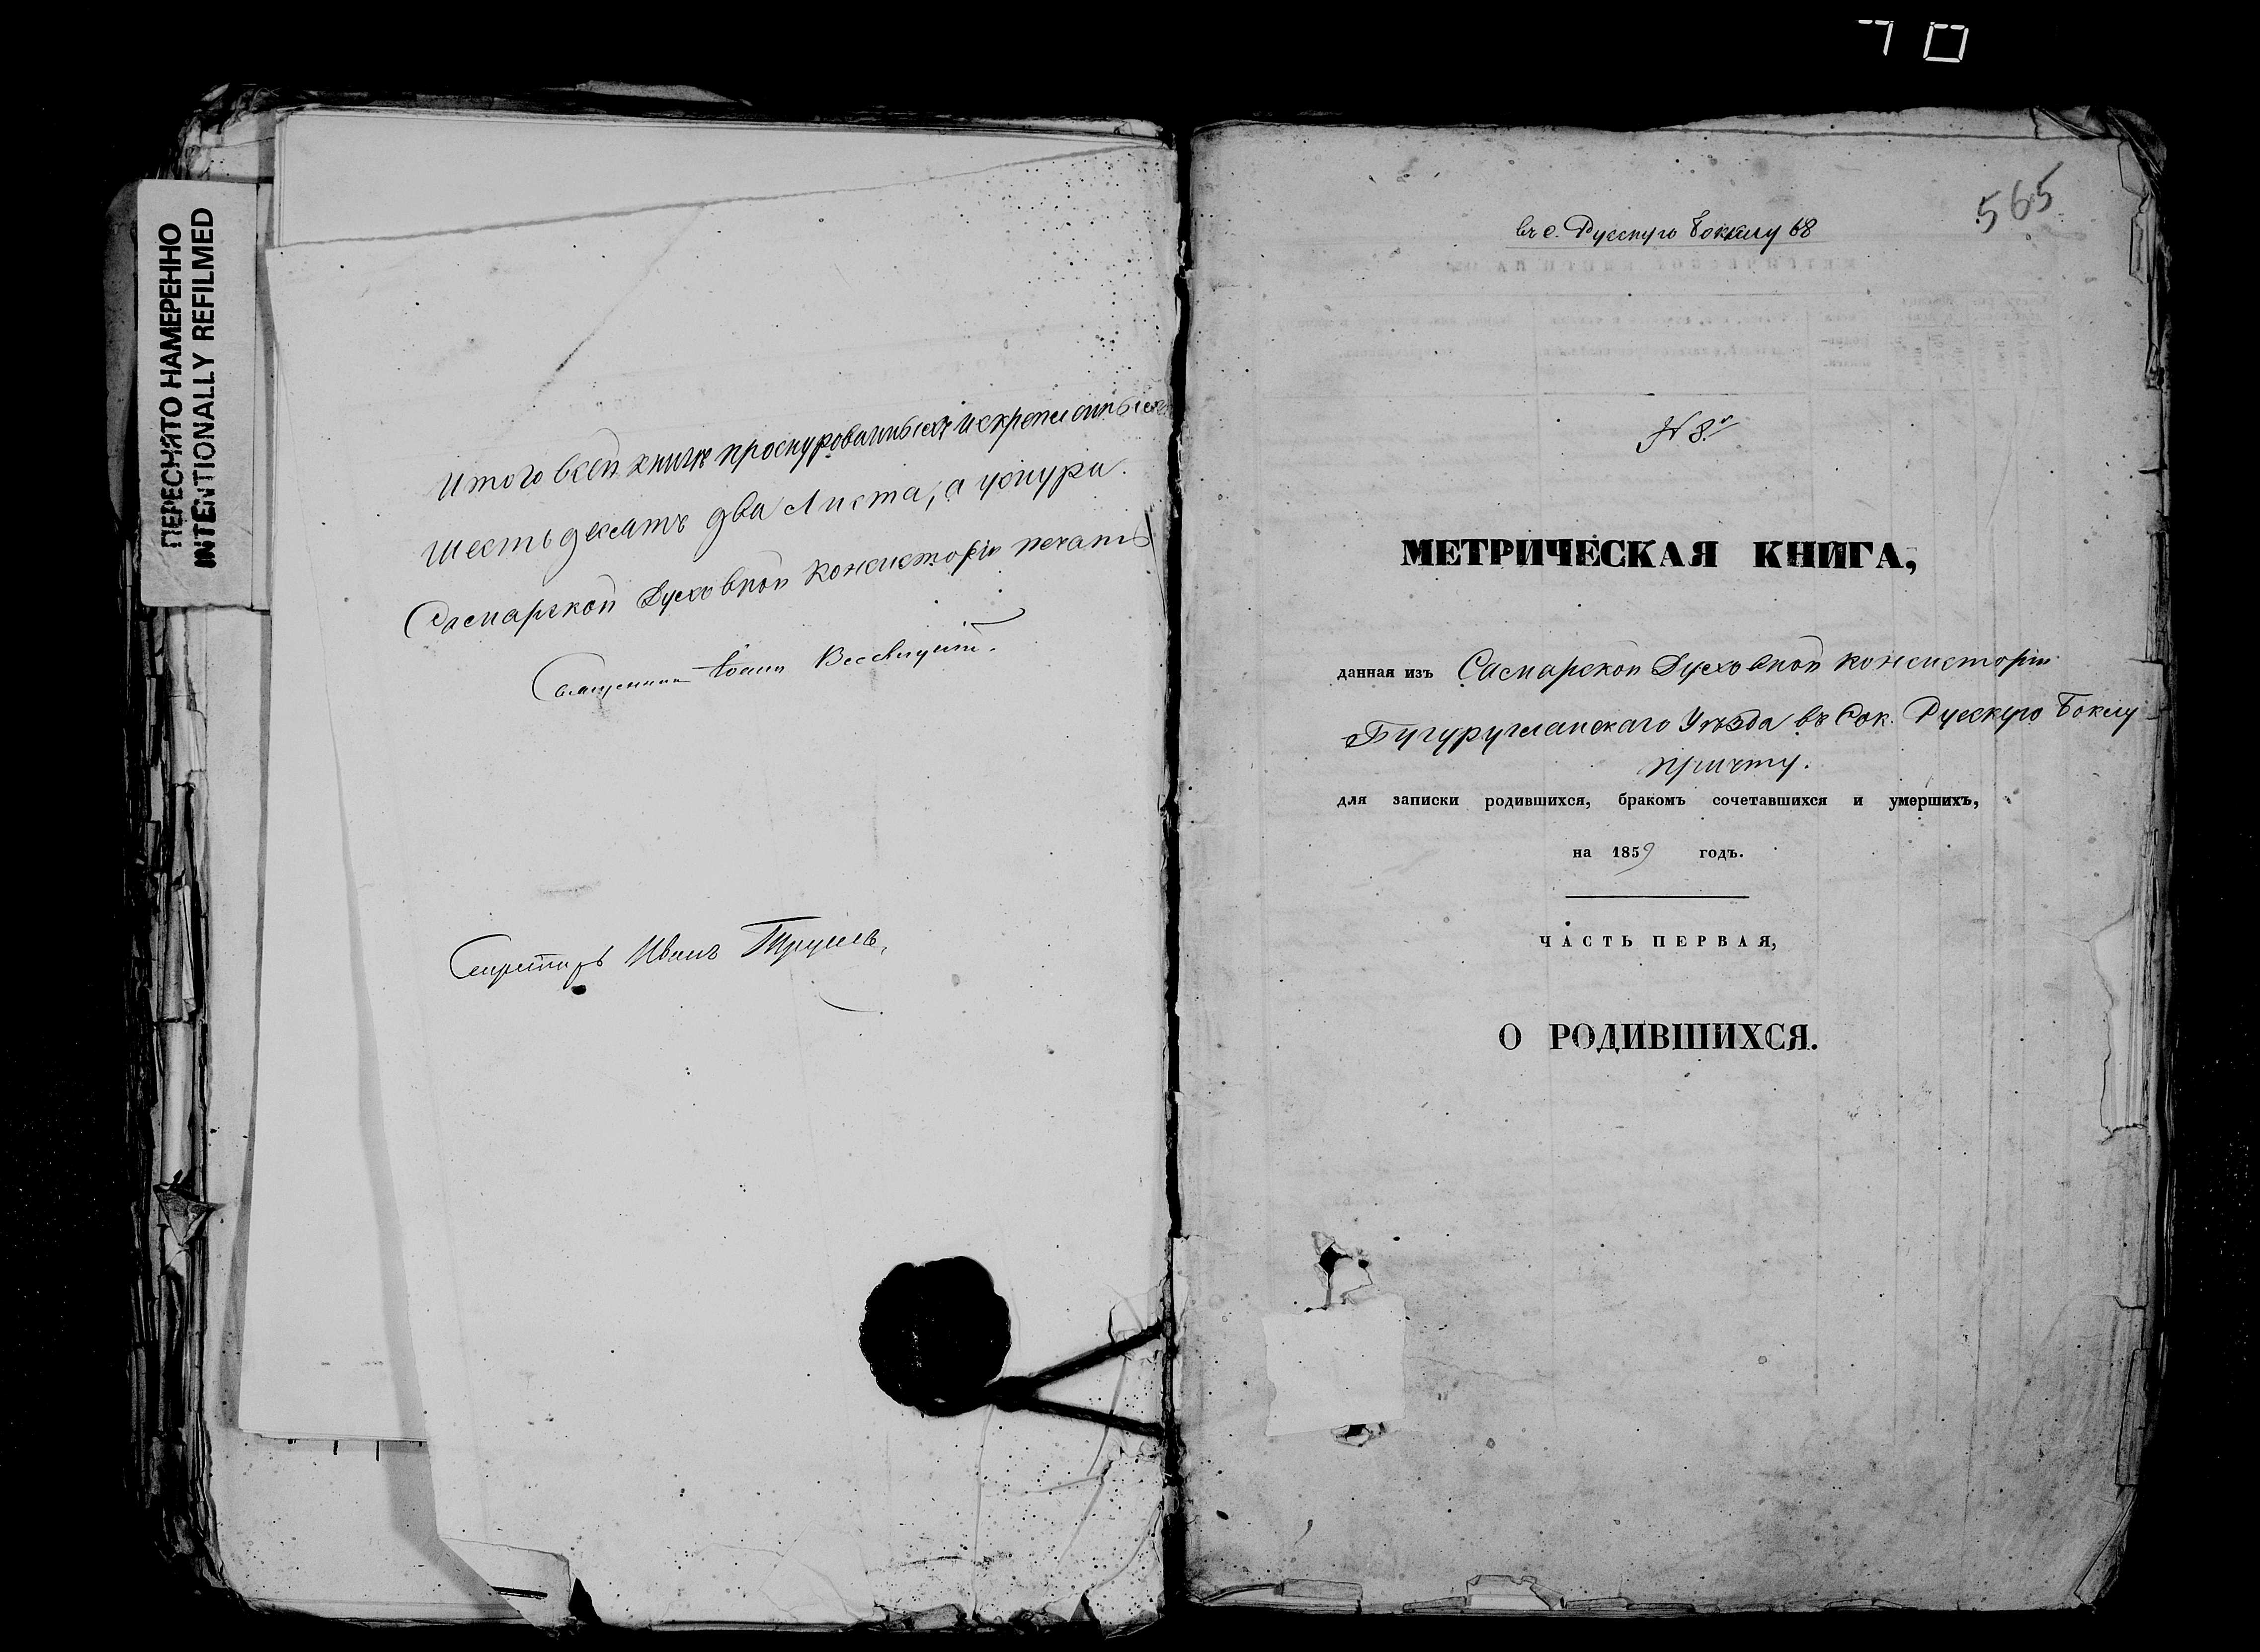 70
ПЕРЕСНЯТО НАМЕРЕННО
INTENTIONALLY REFILMED
Итого всей книге прошнурованныхъ и скрепленныхъ
шестьдесятъ два листа, а у шнура
Самарской Духовной Консисторіи печать
Священникъ Іоаннъ
Секретарь Иванъ
565
въ с. Русскую Боклу 68
№ 8й
МЕТРИЧЕСКАЯ КНИГА,
данная изъ Самарской Духовной Консисторіи
Бугурусланскаго Уѣзда въ Сок. Русскую Боклу
причту.
для записки родившихся, бракомъ сочетавшихся и умершихъ,
на 1859 годъ.
ЧАСТЬ ПЕРВАЯ,
О РОДИВШИХСЯ.